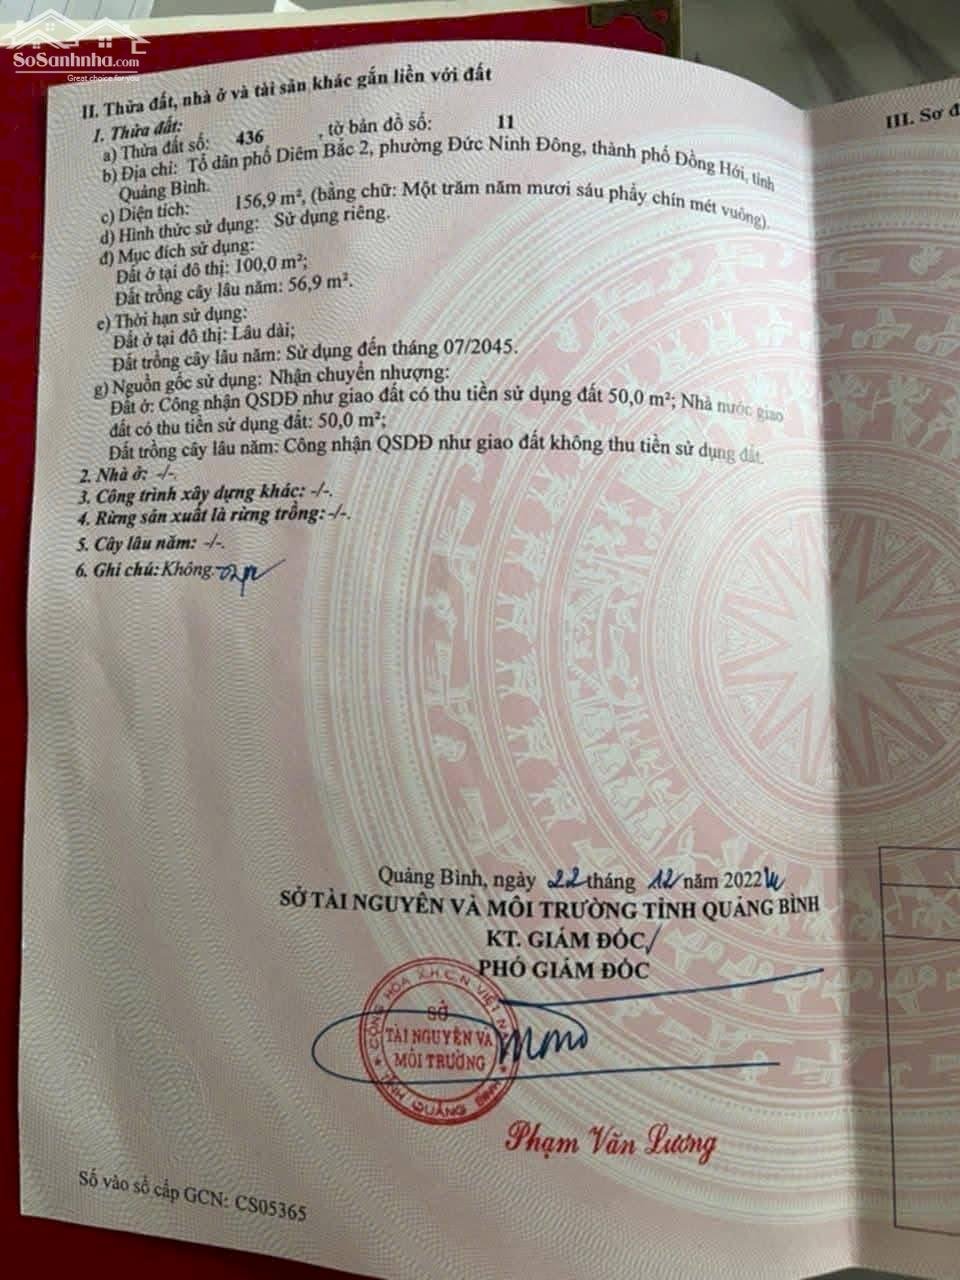 SoSanhnha.com
Great choice for you
II. Thửa đất, nhà ở và tài sản khác gắn liền với đất
III. Sơ đ
1. Thửa đất:
a) Thửa đất số: 436 , tờ bản đồ số: 11
b) Địa chỉ: Tổ dân phố Diêm Bắc 2, phường Đức Ninh Đông, thành phố Đồng Hới, tỉnh
Quảng Bình.
c) Diện tích: 156,9 m², (bằng chữ: Một trăm năm mươi sáu phẩy chín mét vuông).
d) Hình thức sử dụng: Sử dụng riêng.
đ) Mục đích sử dụng:
Đất ở tại đô thị: 100,0 m²;
Đất trồng cây lâu năm: 56,9 m².
e) Thời hạn sử dụng:
Đất ở tại đô thị: Lâu dài;
Đất trồng cây lâu năm: Sử dụng đến tháng 07/2045.
g) Nguồn gốc sử dụng: Nhận chuyển nhượng:
Đất ở: Công nhận QSDĐ như giao đất có thu tiền sử dụng đất 50,0 m²; Nhà nước giao
đất có thu tiền sử dụng đất: 50,0 m²;
Đất trồng cây lâu năm: Công nhận QSDĐ như giao đất không thu tiền sử dụng đất.
2. Nhà ở: -/-.
3. Công trình xây dựng khác: -/-.
4. Rừng sản xuất là rừng trồng: -/-.
5. Cây lâu năm: -/-.
6. Ghi chú: Không.
Quảng Bình, ngày 22 tháng 12 năm 2022
SỞ TÀI NGUYÊN VÀ MÔI TRƯỜNG TỈNH QUẢNG BÌNH
KT. GIÁM ĐỐC
PHÓ GIÁM ĐỐC
CỘNG HÒA X.H.C.N VIỆT NAM
SỞ
TÀI NGUYÊN VÀ
MÔI TRƯỜNG
TỈNH QUẢNG BÌNH
Phạm Văn Lương
Số vào sổ cấp GCN: CS05365